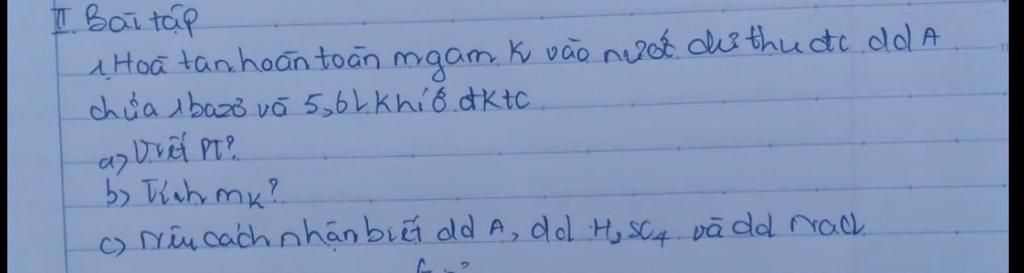 II. Bài tập
1, Hoà tan hoàn toàn m gam K vào nước dư thu đc dd A
chứa 1 bazơ và 5,6L khí ở đktc
a) Viết PT?
b) Tính mK?
c) Nêu cách nhận biết dd A, dd H2SO4 và dd NaCl